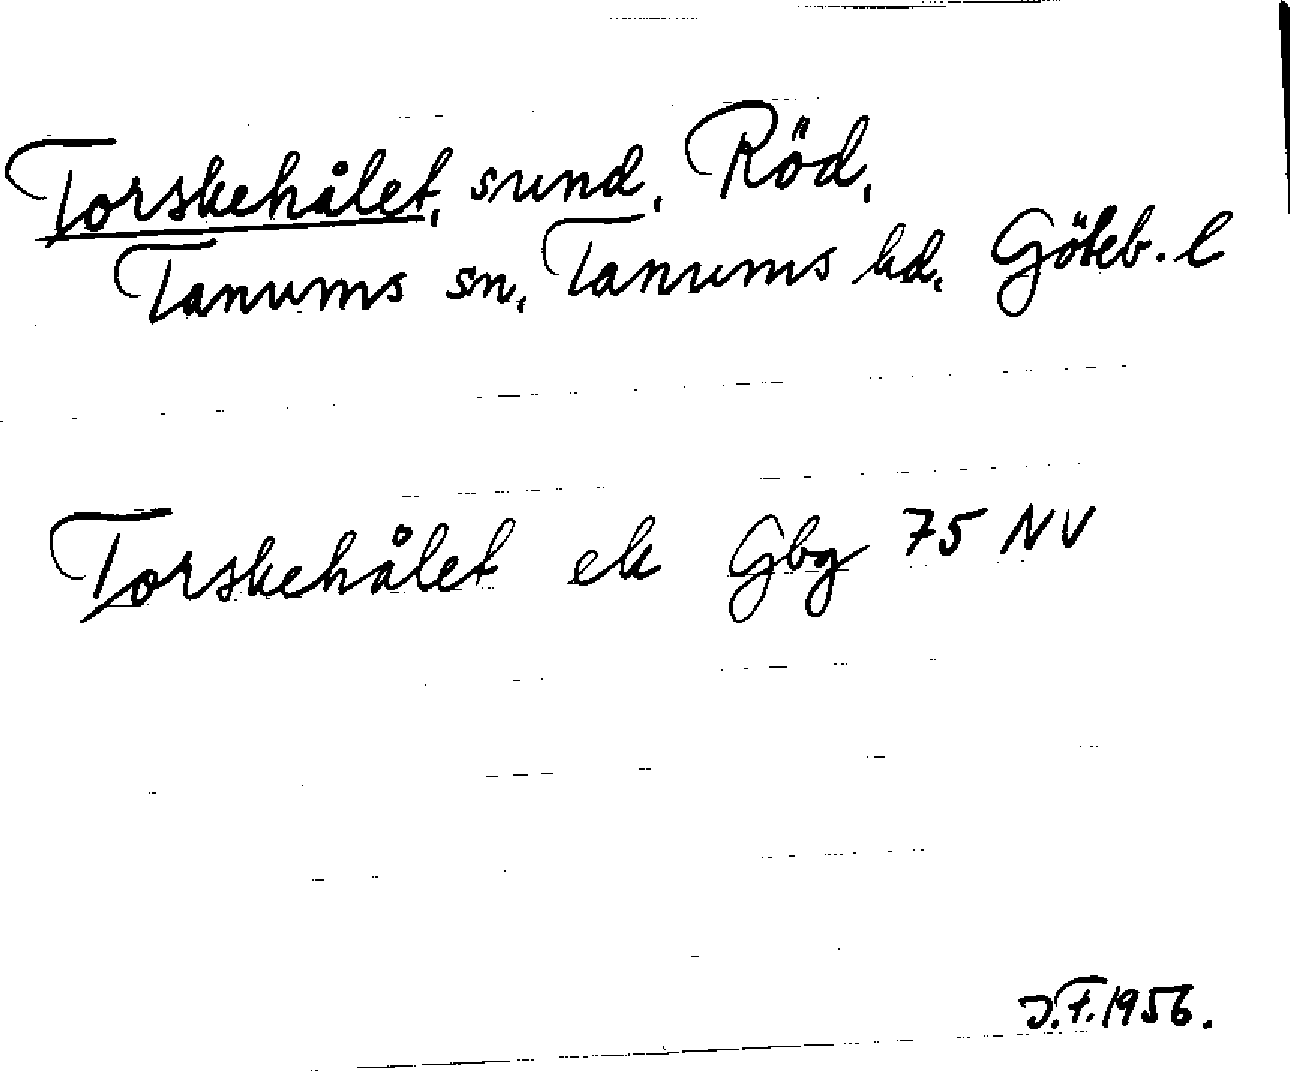 Torskehålet, sund, Röd,
Tanums sn, Tanums hd, Göteb. l
Torskehålet ek Gbg 75 NV
J.F. 1956.